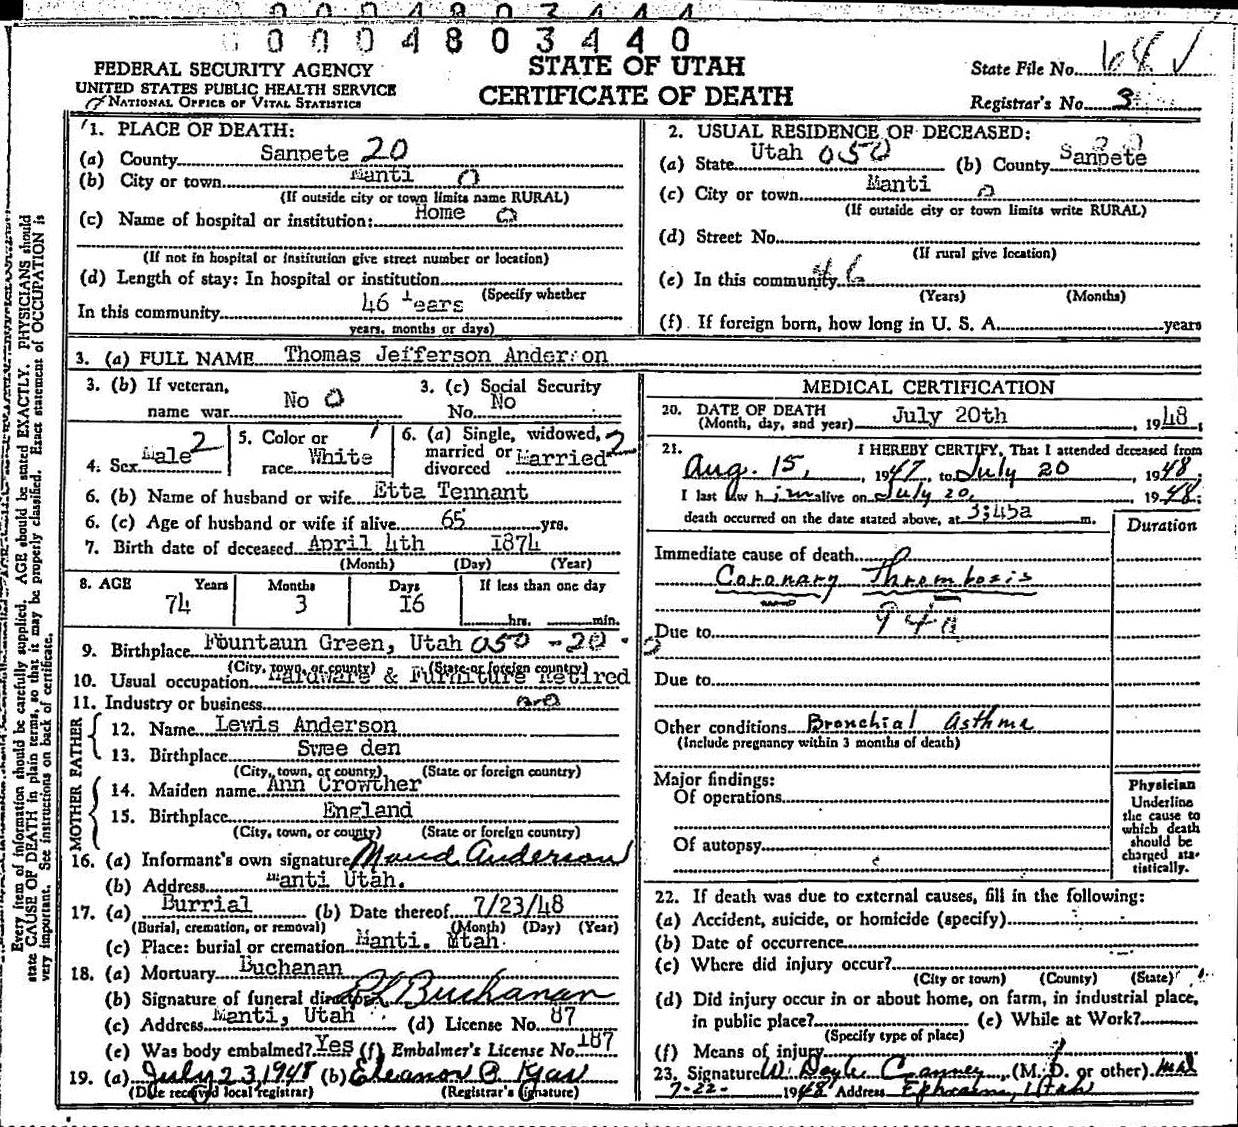 0004803440
FEDERAL SECURITY AGENCY
UNITED STATES PUBLIC HEALTH SERVICE
NATIONAL OFFICE OF VITAL STATISTICS
STATE OF UTAH
CERTIFICATE OF DEATH
State File No.
Registrar's No. 3
1. PLACE OF DEATH:
(a) County Sanpete 20
(b) City or town Manti 0
(If outside city or town limits name RURAL)
(c) Name of hospital or institution: Home 0
(If not in hospital or institution give street number or location)
(d) Length of stay: In hospital or institution
(Specify whether
In this community 46 Years
years, months or days)
2. USUAL RESIDENCE OF DECEASED:
(a) State Utah 050 (b) County Sanpete
(c) City or town Manti 0
(If outside city or town limits write RURAL)
(d) Street No.
(If rural give location)
(e) In this community 46
(Years) (Months)
(f) If foreign born, how long in U. S. A. years
3. (a) FULL NAME Thomas Jefferson Anderson
3. (b) If veteran, name war No 0
3. (c) Social Security No. No
4. Sex Male 2
5. Color or race White 1
6. (a) Single, widowed, married or divorced Married 2
6. (b) Name of husband or wife Etta Tennant
6. (c) Age of husband or wife if alive 65 yrs.
7. Birth date of deceased April 4th 1874
(Month) (Day) (Year)
8. AGE Years Months Days If less than one day
74 3 I6 hrs. min.
9. Birthplace Fountaun Green, Utah 050 - 20
(City, town, or county) (State or foreign country)
10. Usual occupation Hardware & Furniture Retired
11. Industry or business
FATHER
12. Name Lewis Anderson
13. Birthplace Swee den
(City, town, or county) (State or foreign country)
MOTHER
14. Maiden name Ann Crowther
15. Birthplace England
(City, town, or county) (State or foreign country)
16. (a) Informant's own signature Maud Anderson
(b) Address Manti Utah.
17. (a) Burrial (b) Date thereof 7/23/48
(Burial, cremation, or removal) (Month) (Day) (Year)
(c) Place: burial or cremation Manti. Utah
18. (a) Mortuary Buchanan
(b) Signature of funeral director Buchanan
(c) Address Manti, Utah (d) License No. 87
(e) Was body embalmed? Yes (f) Embalmer's License No. 187
19. (a) July 23, 1948 (b) Eleanor
(Date received local registrar) (Registrar's signature)
MEDICAL CERTIFICATION
20. DATE OF DEATH
(Month, day, and year) July 20th, 1948
21. I HEREBY CERTIFY, That I attended deceased from
Aug. 15, 1947, to July 20, 1948.
I last saw him alive on July 20, 1948;
death occurred on the date stated above, at 3;45a m.
Duration
Immediate cause of death
Coronary Thrombosis
Due to 94a
Due to
Other conditions Bronchial Asthma
(Include pregnancy within 3 months of death)
Major findings:
Of operations
Of autopsy
Physician
Underline
the cause to
which death
should be
charged sta-
tistically.
22. If death was due to external causes, fill in the following:
(a) Accident, suicide, or homicide (specify)
(b) Date of occurrence
(c) Where did injury occur?
(City or town) (County) (State)
(d) Did injury occur in or about home, on farm, in industrial place,
in public place? (e) While at Work?
(Specify type of place)
(f) Means of injury
23. Signature W. Doyle Cranney, (M. D. or other) MD
7-22- 1948 Address Ephraim, Utah
Every item of information should be carefully supplied. AGE should be stated EXACTLY. PHYSICIANS should
state CAUSE OF DEATH in plain terms, so that it may be properly classified. Exact statement of OCCUPATION is
very important. See instructions on back of certificate.